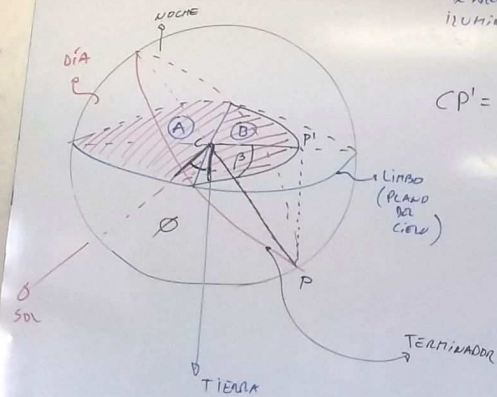 NOCHE
ILUMIN
DÍA
CP' =
A
B
C
P'
β
LIMBO
(PLANO
DEL
CIELO)
Ø
P
SOL
TERMINADOR
TIERRA